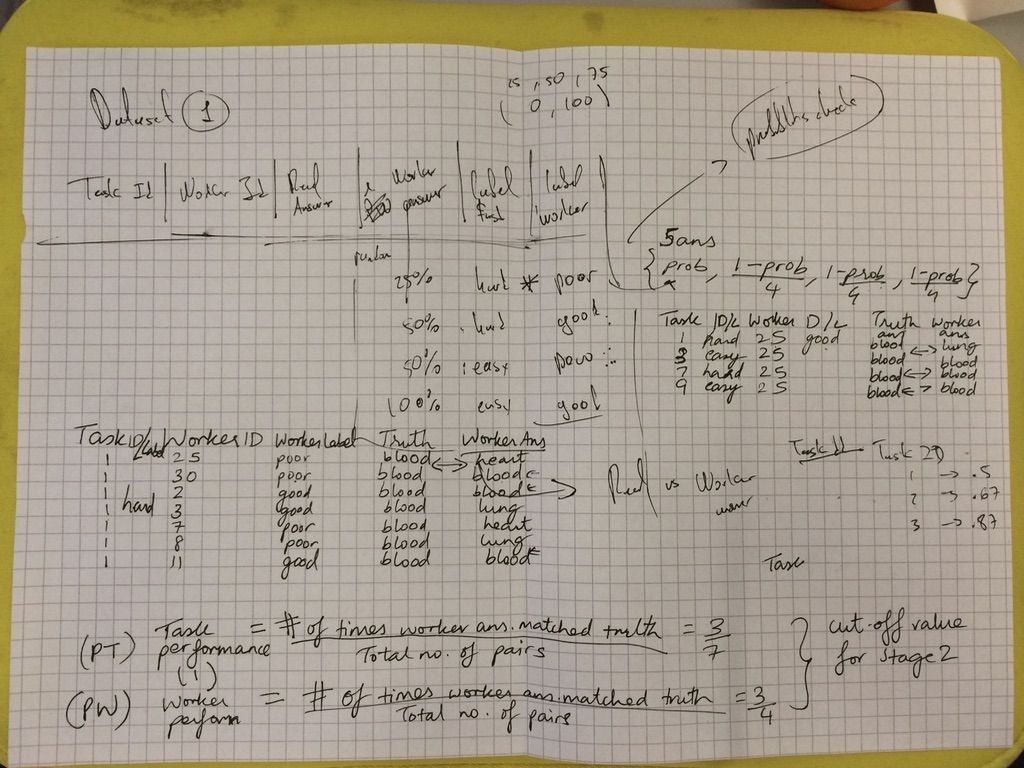 Dataset 1
25, 50, 75
(0, 100)
Task Id | Worker Id | Real Answer | worker answer | label task | label worker
25% hard * poor
50% hard good
50% easy poor
100% easy good
5 ans
{ prob, 1-prob/4, 1-prob/4, 1-prob/4 }
Task ID/L Worker D/L Truth ans worker ans
1 hard 25 good blood <-> lung
3 easy 25 blood blood
7 hard 25 blood <-> blood
9 easy 25 blood <-> blood
Task ID/Label Worker ID Worker Label Truth Worker Ans
1 25 poor blood <-> heart
1 30 poor blood blood
1 hard 2 good blood blood
1 3 good blood lung
1 7 poor blood heart
1 8 poor blood lung
1 11 good blood blood
Real vs Worker
Task ID
1 → .5
2 → .67
3 → .87
Task
(PT) Task performance (1) = # of times worker ans. matched truth / Total no. of pairs = 3/7
(PW) Worker perform = # of times worker ans. matched truth / Total no. of pairs = 3/4
} cut-off value
for stage 2